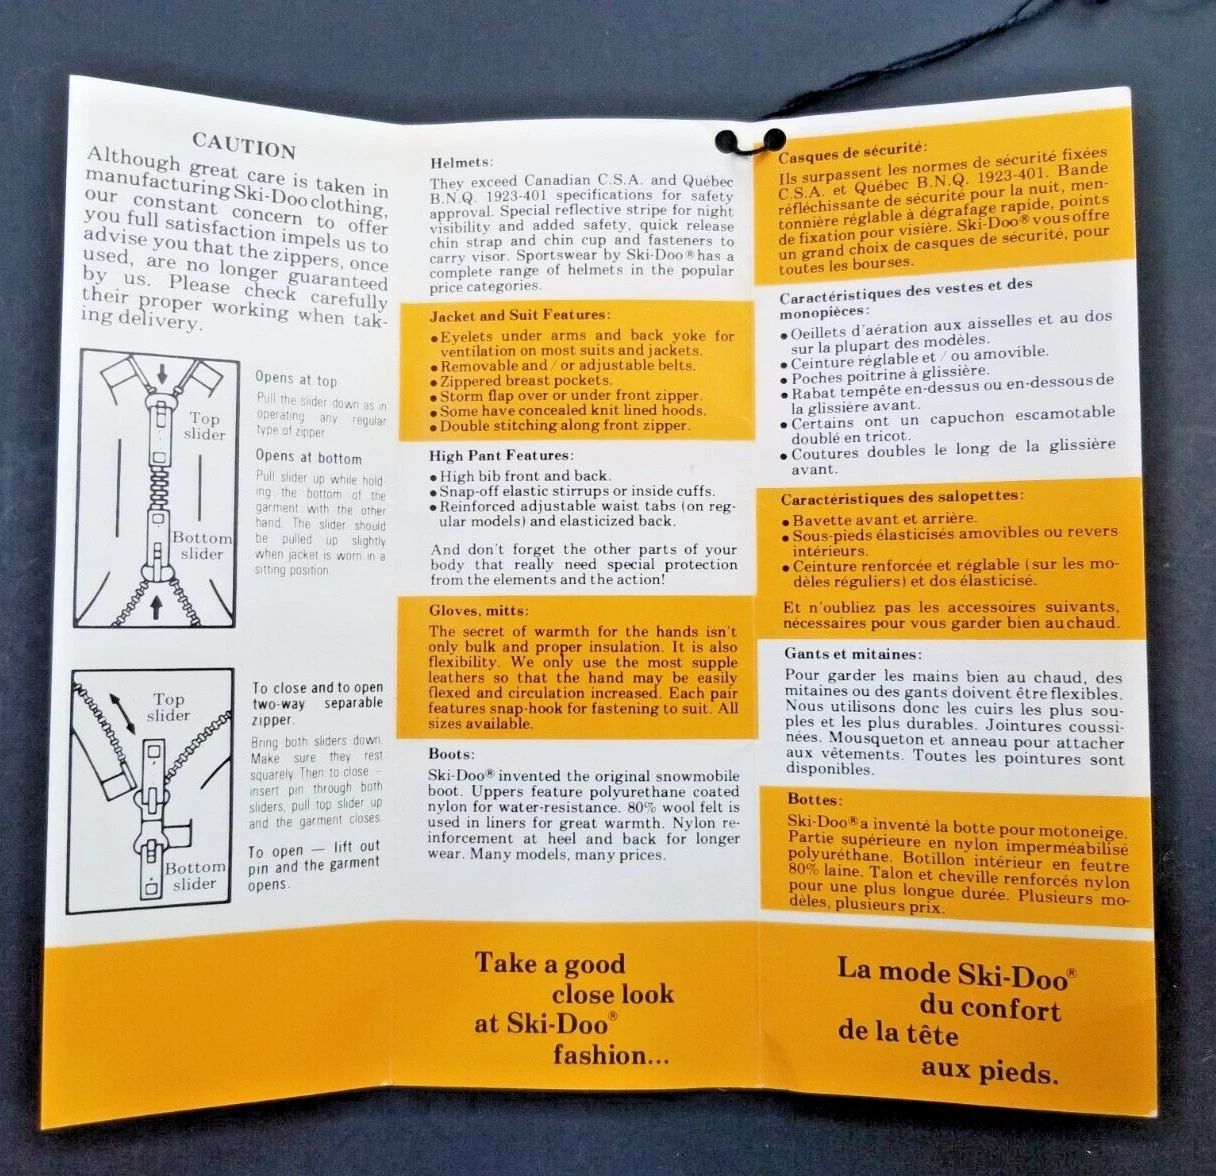 CAUTION
Although great care is taken in
manufacturing Ski-Doo clothing,
our constant concern to offer
you full satisfaction impels us to
advise you that the zippers, once
used, are no longer guaranteed
by us. Please check carefully
their proper working when tak-
ing delivery.
Top
slider
Bottom
slider
Opens at top
Pull the slider down as in
operating any regular
type of zipper
Opens at bottom
Pull slider up while hold
ing the bottom of the
garment with the other
hand. The slider should
be pulled up slightly
when jacket is worn in a
sitting position
Top
slider
Bottom
slider
To close and to open
two-way separable
zipper.
Bring both sliders down.
Make sure they rest
squarely. Then to close –
insert pin through both
sliders, pull top slider up
and the garment closes.
To open — lift out
pin and the garment
opens.
Helmets:
They exceed Canadian C.S.A. and Québec
B.N.Q. 1923-401 specifications for safety
approval. Special reflective stripe for night
visibility and added safety, quick release
chin strap and chin cup and fasteners to
carry visor. Sportswear by Ski-Doo® has a
complete range of helmets in the popular
price categories.
Jacket and Suit Features:
• Eyelets under arms and back yoke for
ventilation on most suits and jackets.
• Removable and / or adjustable belts.
• Zippered breast pockets.
• Storm flap over or under front zipper.
• Some have concealed knit lined hoods.
• Double stitching along front zipper.
High Pant Features:
• High bib front and back.
• Snap-off elastic stirrups or inside cuffs.
• Reinforced adjustable waist tabs (on reg-
ular models) and elasticized back.
And don't forget the other parts of your
body that really need special protection
from the elements and the action!
Gloves, mitts:
The secret of warmth for the hands isn't
only bulk and proper insulation. It is also
flexibility. We only use the most supple
leathers so that the hand may be easily
flexed and circulation increased. Each pair
features snap-hook for fastening to suit. All
sizes available.
Boots:
Ski-Doo® invented the original snowmobile
boot. Uppers feature polyurethane coated
nylon for water-resistance. 80% wool felt is
used in liners for great warmth. Nylon re-
inforcement at heel and back for longer
wear. Many models, many prices.
Take a good
close look
at Ski-Doo®
fashion...
Casques de sécurité:
Ils surpassent les normes de sécurité fixées
C.S.A. et Québec B.N.Q. 1923-401. Bande
réfléchissante de sécurité pour la nuit, men-
tonnière réglable à dégrafage rapide, points
de fixation pour visière. Ski-Doo® vous offre
un grand choix de casques de sécurité, pour
toutes les bourses.
Caractéristiques des vestes et des
monopièces:
• Oeillets d'aération aux aisselles et au dos
sur la plupart des modèles.
• Ceinture réglable et / ou amovible.
• Poches poitrine à glissière.
• Rabat tempête en-dessus ou en-dessous de
la glissière avant.
• Certains ont un capuchon escamotable
doublé en tricot.
• Coutures doubles le long de la glissière
avant.
Caractéristiques des salopettes:
• Bavette avant et arrière.
• Sous-pieds élasticisés amovibles ou revers
intérieurs.
• Ceinture renforcée et réglable (sur les mo-
dèles réguliers) et dos élasticisé.
Et n'oubliez pas les accessoires suivants,
nécessaires pour vous garder bien au chaud.
Gants et mitaines:
Pour garder les mains bien au chaud, des
mitaines ou des gants doivent être flexibles.
Nous utilisons donc les cuirs les plus sou-
ples et les plus durables. Jointures coussi-
nées. Mousqueton et anneau pour attacher
aux vêtements. Toutes les pointures sont
disponibles.
Bottes:
Ski-Doo® a inventé la botte pour motoneige.
Partie supérieure en nylon imperméabilisé
polyuréthane. Botillon intérieur en feutre
80% laine. Talon et cheville renforcés nylon
pour une plus longue durée. Plusieurs mo-
dèles, plusieurs prix.
La mode Ski-Doo®
du confort
de la tête
aux pieds.